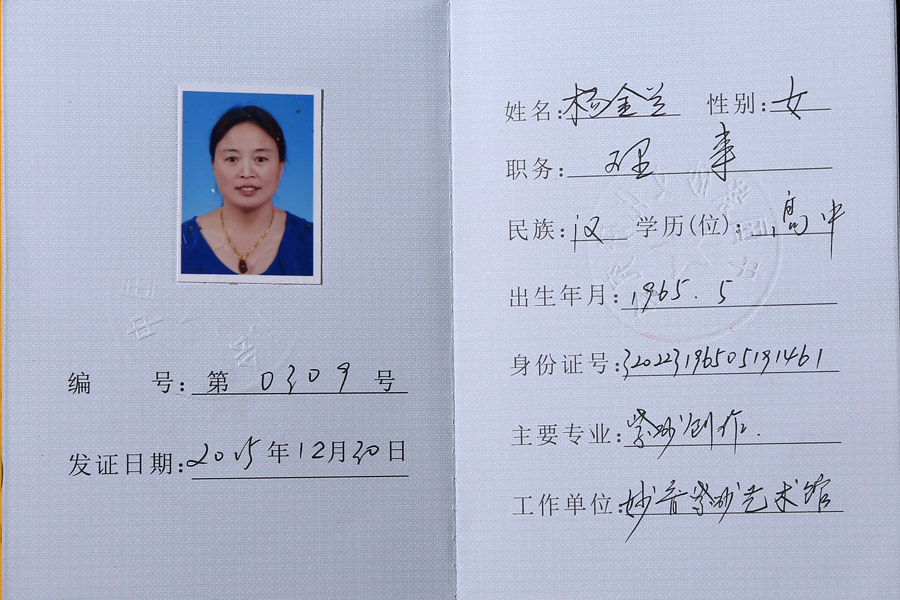 编 号：第 0309 号
发证日期：2015年12月30日
姓名：杨金兰 性别：女
职务：理事
民族：汉 学历(位)：高中
出生年月：1965.5
身份证号：320223196505191461
主要专业：紫砂创作.
工作单位：妙音紫砂艺术馆